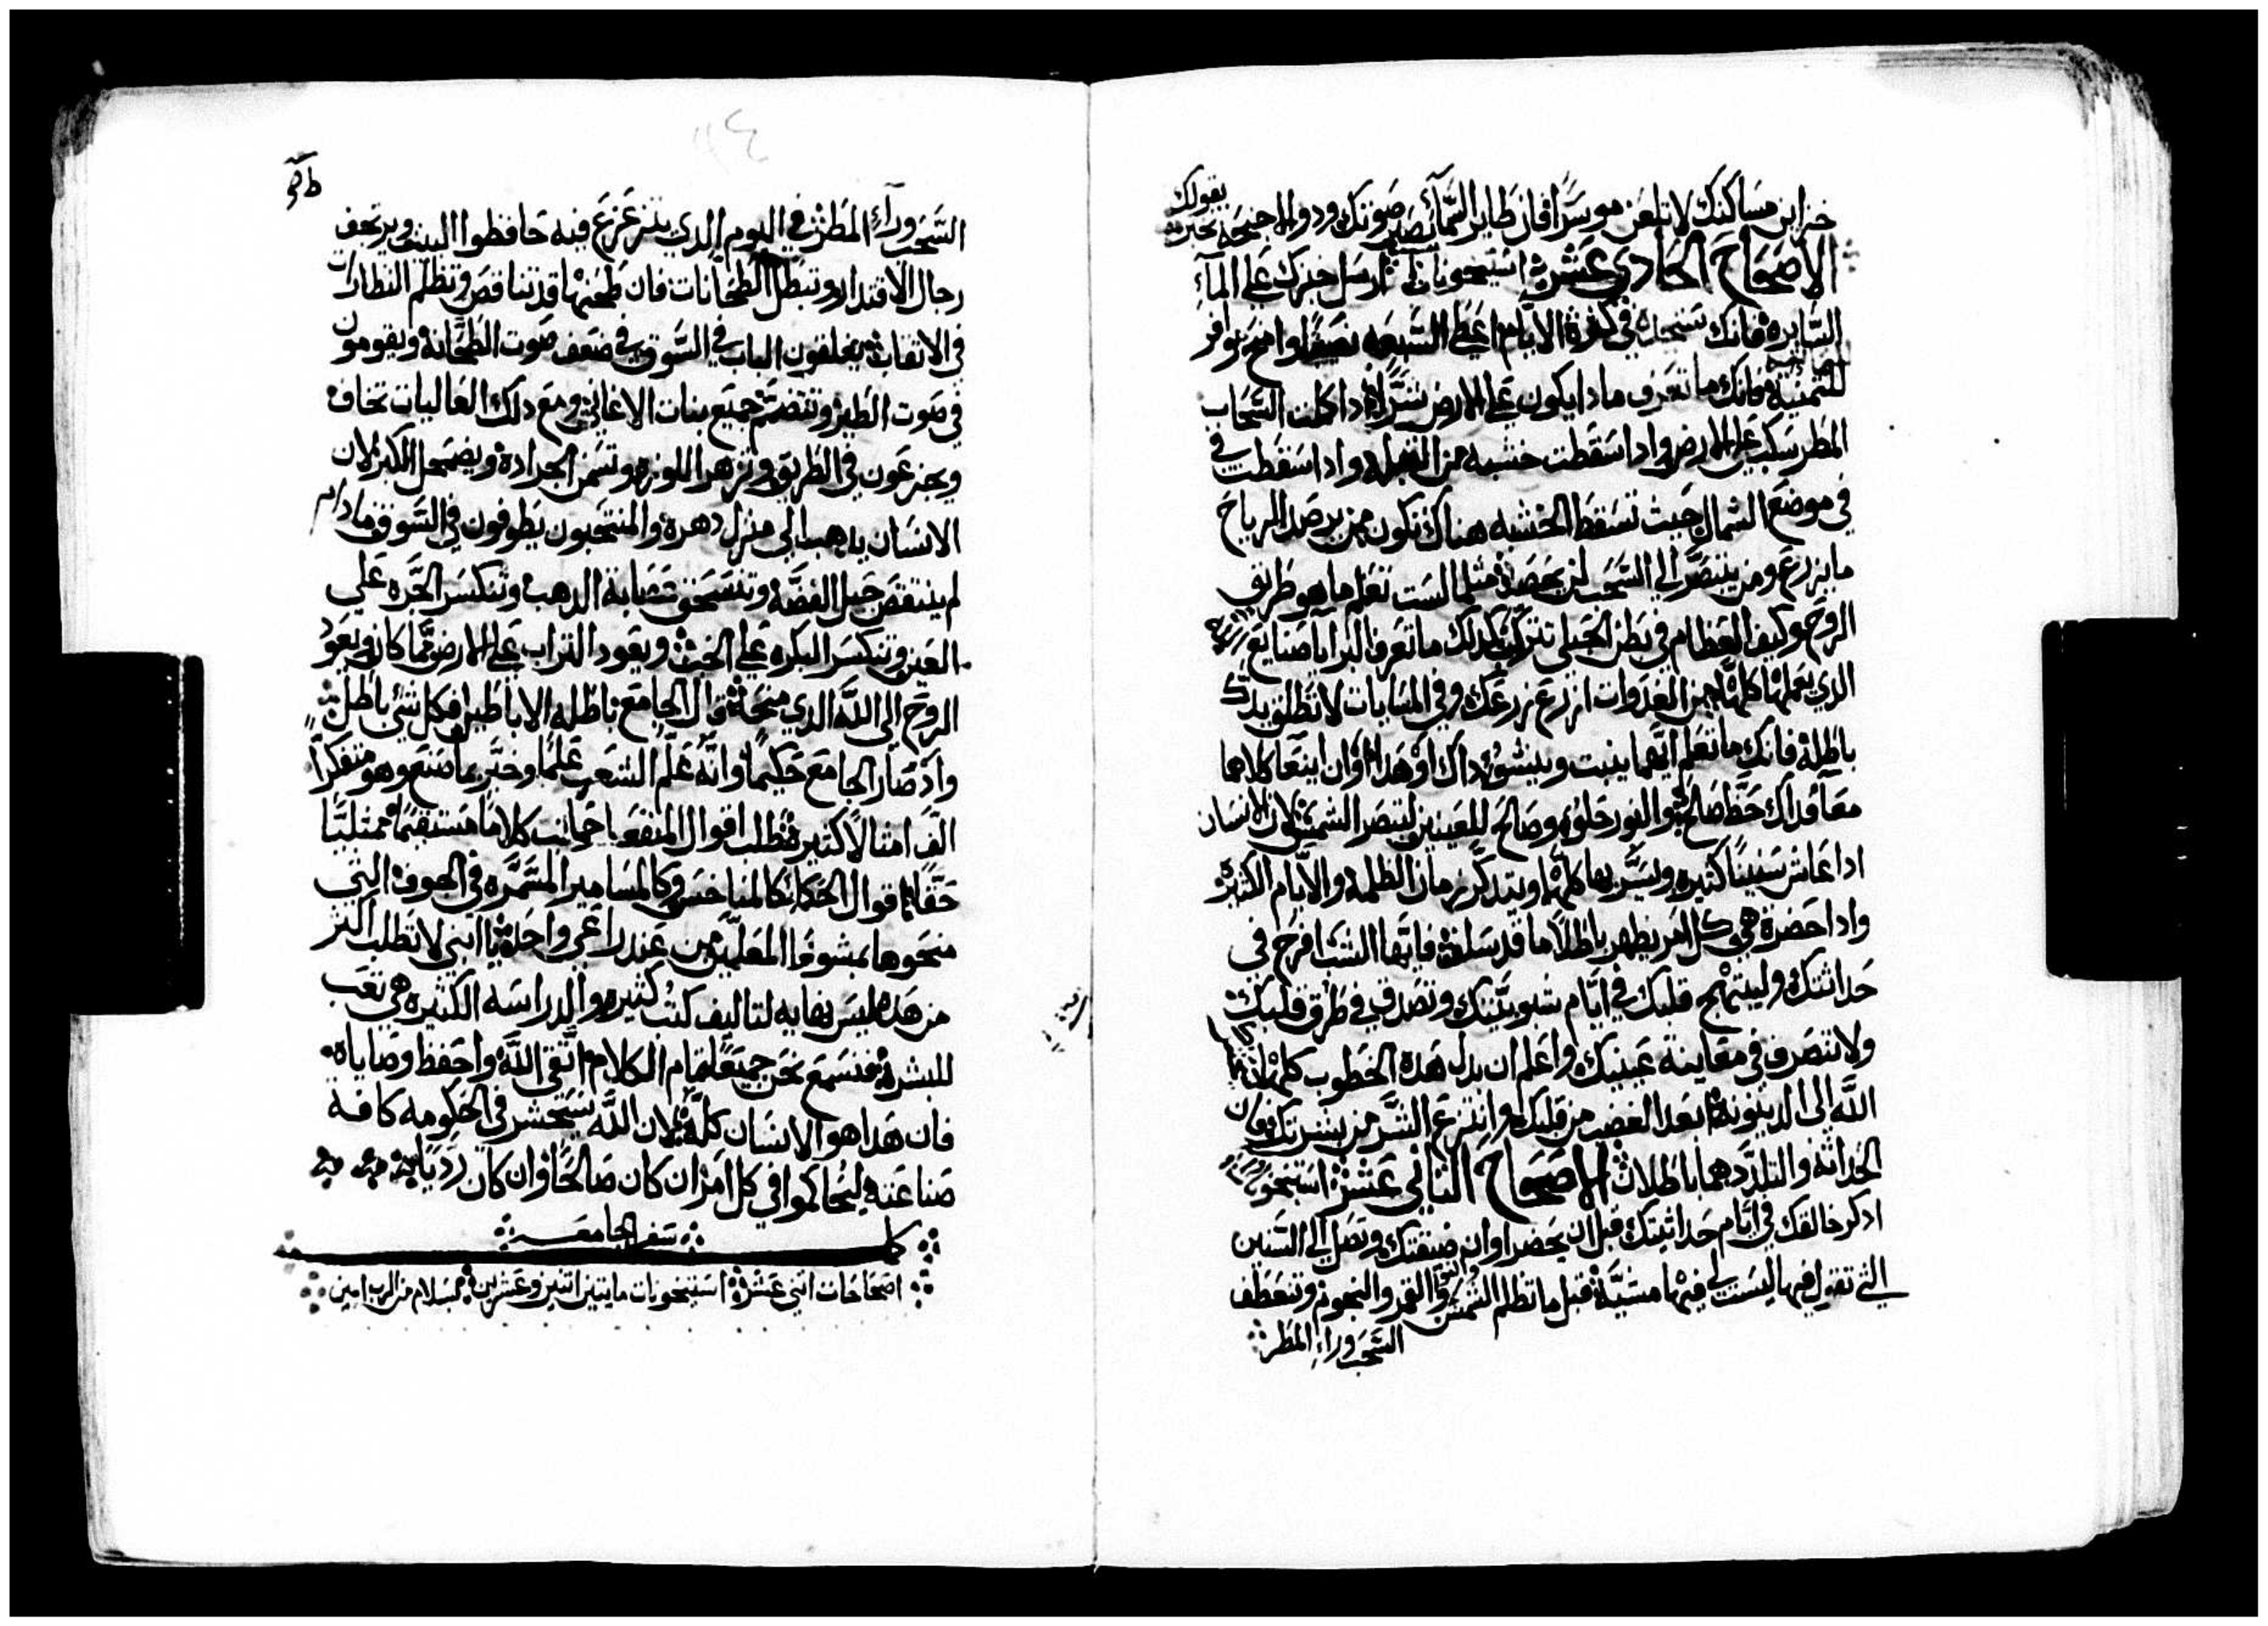 خزاين مساكنك لا تلعن موسرًا فان طاير السمآء يصير صوتك ودو الاجنحه يخبر
بقولك
الاصحاح الحادي عشر استيخونات ارسل خبزك على المآء
السايرة فانك ستجده في كثرة الايام اعط السبعه نصيبًا وامنح
للثمنية فانك ما تعرف مادا يكون على الارض شرًا ادا كملت السحاب
المطر تسكب على الارض وادا سقطت خشبه من القبله وادا سقطت في
في موضع الشمال حيث تسقط الخشبه هناك تكون من يرصد الرياح
ما يزرع ومن يتبصر الى السحب لن يحصد مثلما لست تعلم ما هو طريق
الروح وكيف العظام في بطن الحبلى تتركب كدلك ما تعرف البرايا صنايع
الدي يعملها كلها من الغدوات ازرع زرعك وفي المسايات لا تطلق يدك
باطلة فانك ما تعلم ايهما ينبت وينشو داك او هدا وان اينعا كلاهما
معآ فداك حظ صالح والنور حلو وصالح للعينين لتبصر الشمس لان الانسان
ادا عاش سنينًا كثيره ويسر بها كلها ويتدكر زمان الظلمة والايام الكثيرة
وادا حضرة هي كل امر يظهر باطلاً ما قد سلف فايها الشب افرح في
حداثتك وليبتهج قلبك في ايام شبوبيتك وتصرف في طرق قلبك
ولا تتصرف في معاينة عينيك واعلم ان بدل هده الخطوب كلها
الله الى الدينونة ابعد الغضب من قلبك وانتزع الشر من بشرتك فان
الحداثة والتلدد هما باطلان الاصحاح الثاني عشر استيخو
ادكر خالقك في ايام حداثيتك قبل ان يحضر اوان ضيقتك وتصل الى السنين
التي تقول فيها ليست لي فيها مشيّة قبل ما تظلم الشمس والقمر والنجوم وتنعطف
السحب ورآء المطر
السحب ورآء المطر في اليوم الدي يتزعزع فيه حافظوا البيت ويرتجف
رجال الاقتدار وتبطل الطحانات فان طحنها قد تناقص وتظلم النظارات
في الاثقاب يغلقون الباب في السوق في ضعف صوت الطحانة ويقومون
في صوت الطير وتتضع جميع بنات الاغاني ومع دلك العاليات تخاف
ويجزعون في الطريق وتزهر اللوزه وتسمن الجرادة ويضمحل الكبر لان
الانسان يدهب الى منزل دهره والمنتحبون يطوفون في السوق ما دام
لم ينتقض حبل الفضة وتنسحق عصابة الدهب وتنكسر الجره على
العين وتنكسر البكره على الجب ويعود التراب على الارض كما كان وتعود
الروح الى الله الدي منحها قال الجامع باطله الاباطيل فكل شي باطل
واد صار الجامع حكيمًا وانه علم الشعب علمًا وخبر بما صنع وهو متفكرًا
الف امثالاً كثيره فطلب اقوال المنفعه كلامًا مستقيمًا ممتليًا
حقًا اقوال الحكمآ كالمناخس وكالمسامير المسمره في الجوف التي
منحوها بمشوره المعلمين من عند راعي واحد يا ابني لا تطلب اكثر
من هده ليس نهايه لتاليف كتب كثيره والدراسه الكثيره هي تعب
للبشره فنسمع نحن جميعًا تمام الكلام اتقي الله واحفظ وصاياه
فان هدا هو الانسان كله لان الله سيحشر في الحكومه كافة
صناعته ليحاكموا في كل امر ان كان صالحًا وان كان رديًا
كمل سفر الجامعـــه
اصحاحات اثني عشر استيخونات مايتين اثنين وعشرين بسلام من الرب امين